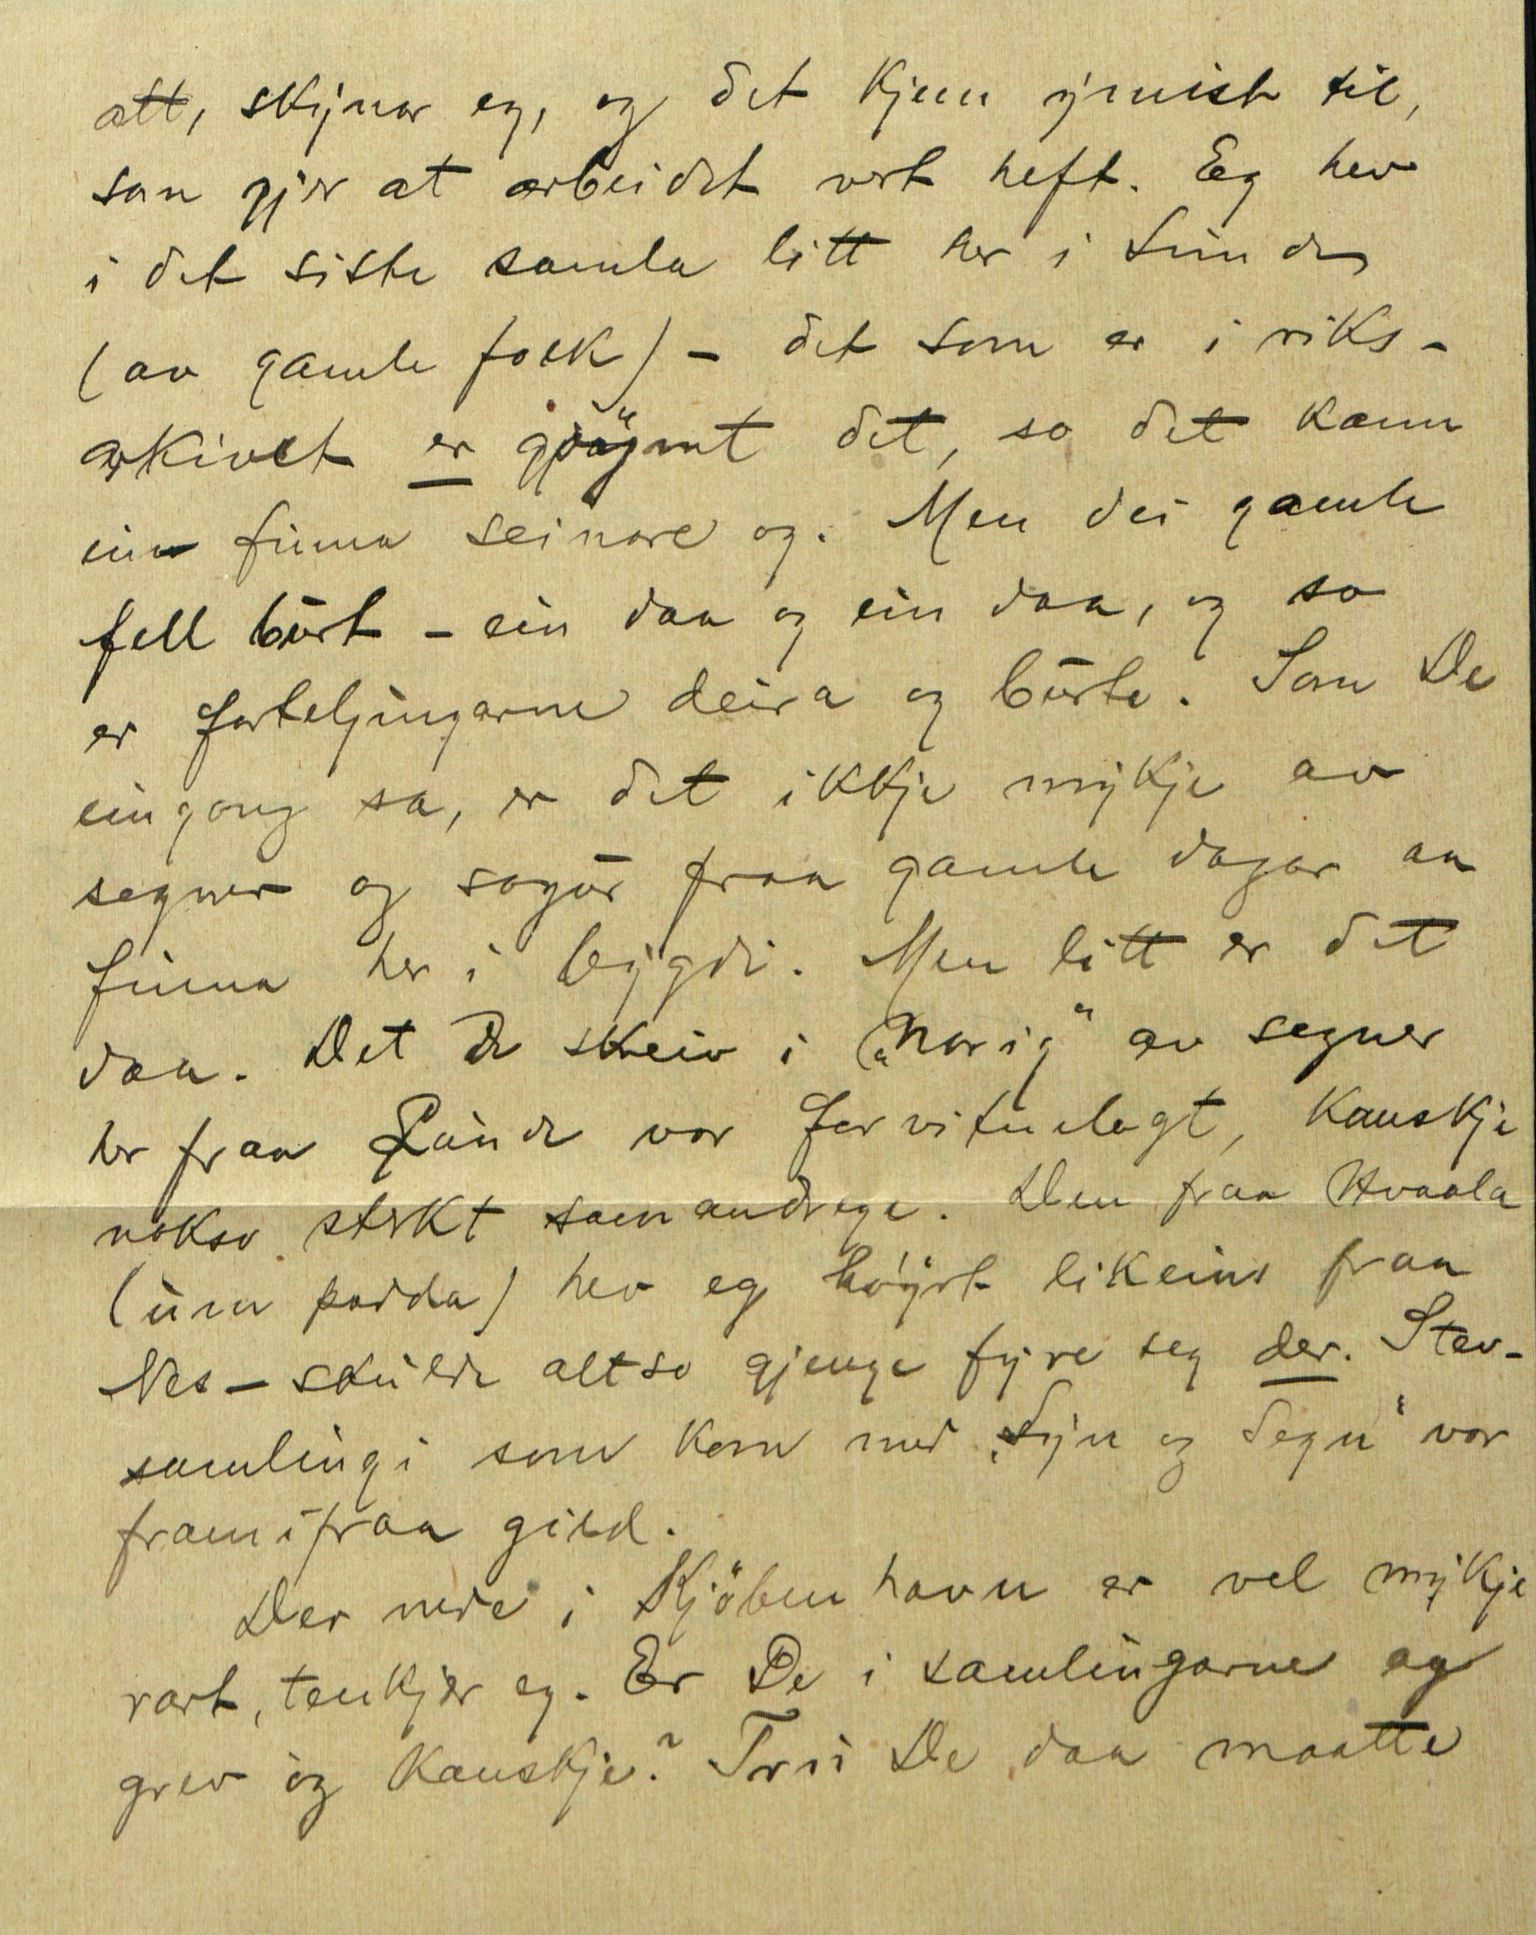 att, skynar eg, og det kjem ymist til,
som gjer at arbeidet vert heft. Eg hev
i det siste samla litt her i Sund
(av gamle folk) – det som er i riks-
arkivet er gjöymt det, so det kann
ein finna seinare og. Men dei gamle
fell burt – ein daa og ein daa, og so
er forteljingarne deira og burte. Som De
eingong sa, er det ikkje mykje av
segner og sogur fraa gamle dagar aa
finna her i bygdi. Men litt er det
daa. Det De skreiv i „Norig“ av segner
her fraa Lünde var forvitnelegt, kanskje
nokso sterkt samandrege. Den fraa Hvaala
(um padda) hev eg höyrt likeins fraa
Nes – skulde altso gjenge fyre seg der. Stev-
samlingi som kom med „Syn og Segn“ var
framifraa gild.
Der nede i Kjöbenhavn er vel mykje
rart, tenkjer eg. Er De i samlingarne og
grev og kanskje? Trui De daa maatte